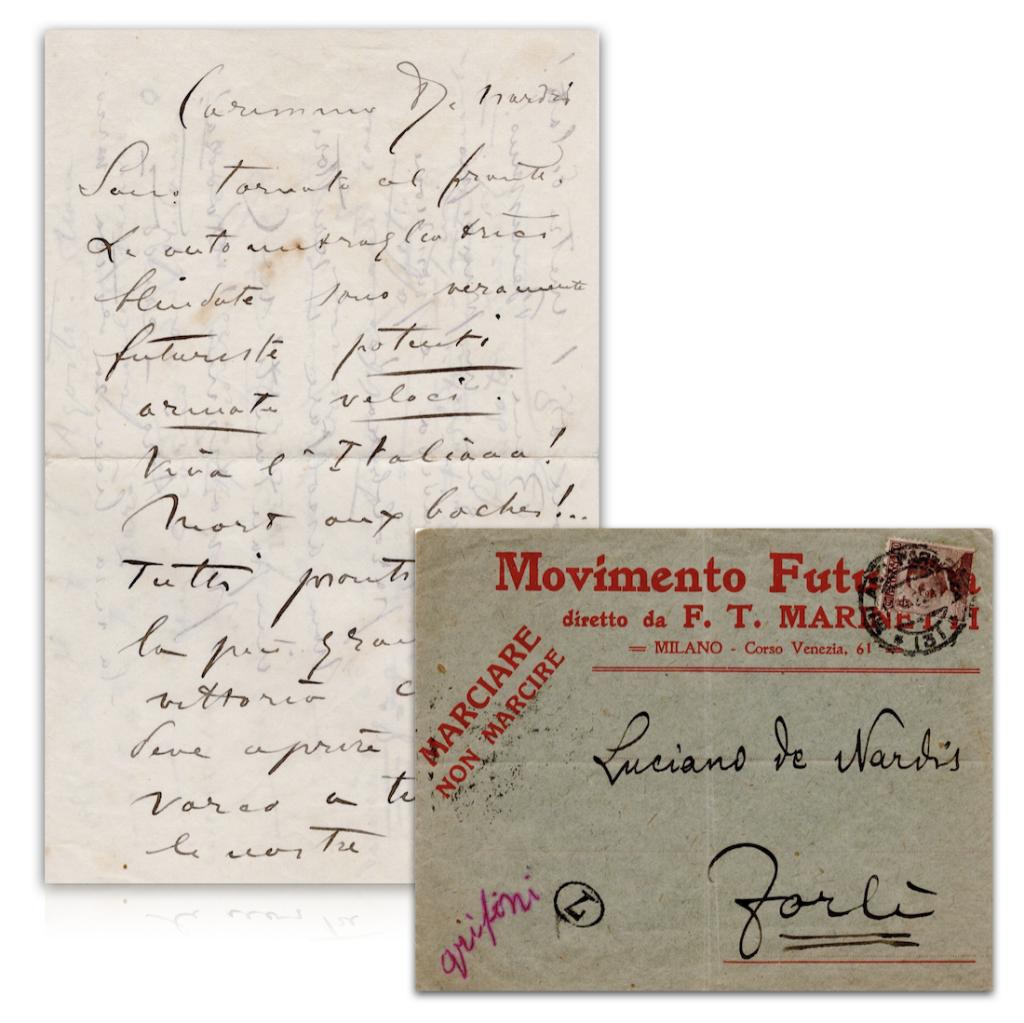 Carissimo De Nardis
Sono tornato al fronte.
Le automitragliatrici
blindate sono veramente
futuriste potenti
armate veloci.
Viva l'Italiaaa!
Mort aux boches!..
Tutti pronti
la più gra
vittoria
deve aprire
varco a
le nostre
Movimento Fut
diretto da F. T. MARINETTI
MILANO - Corso Venezia, 61
MARCIARE
NON MARCIRE
Luciano de Nardis
Forlì
grifoni
L